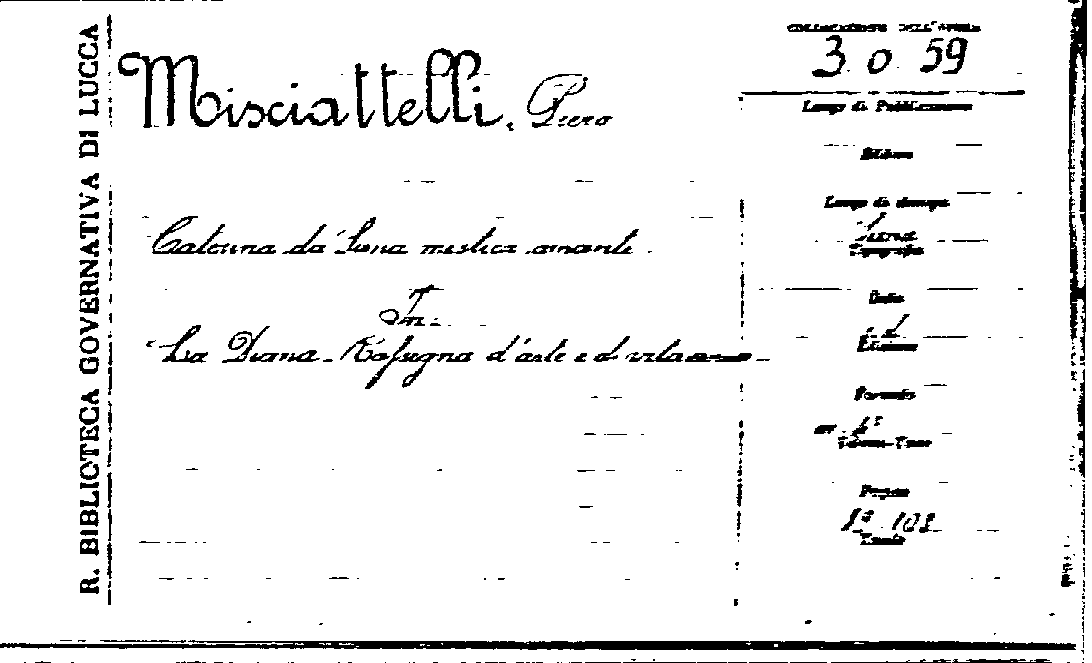 R. BIBLIOTECA GOVERNATIVA DI LUCCA
Misciattelli, Piero
Caterina da Siena mistica amante.
In:
"La Diana - Rassegna d'arte e di vita
COLLOCAZIONE DELL'OPERA
3 0 59
Luogo di Pubblicazione
Editore
Luogo di stampa
Siena
Tipografia
Data
s. d.
Edizione
Formato
Pagine